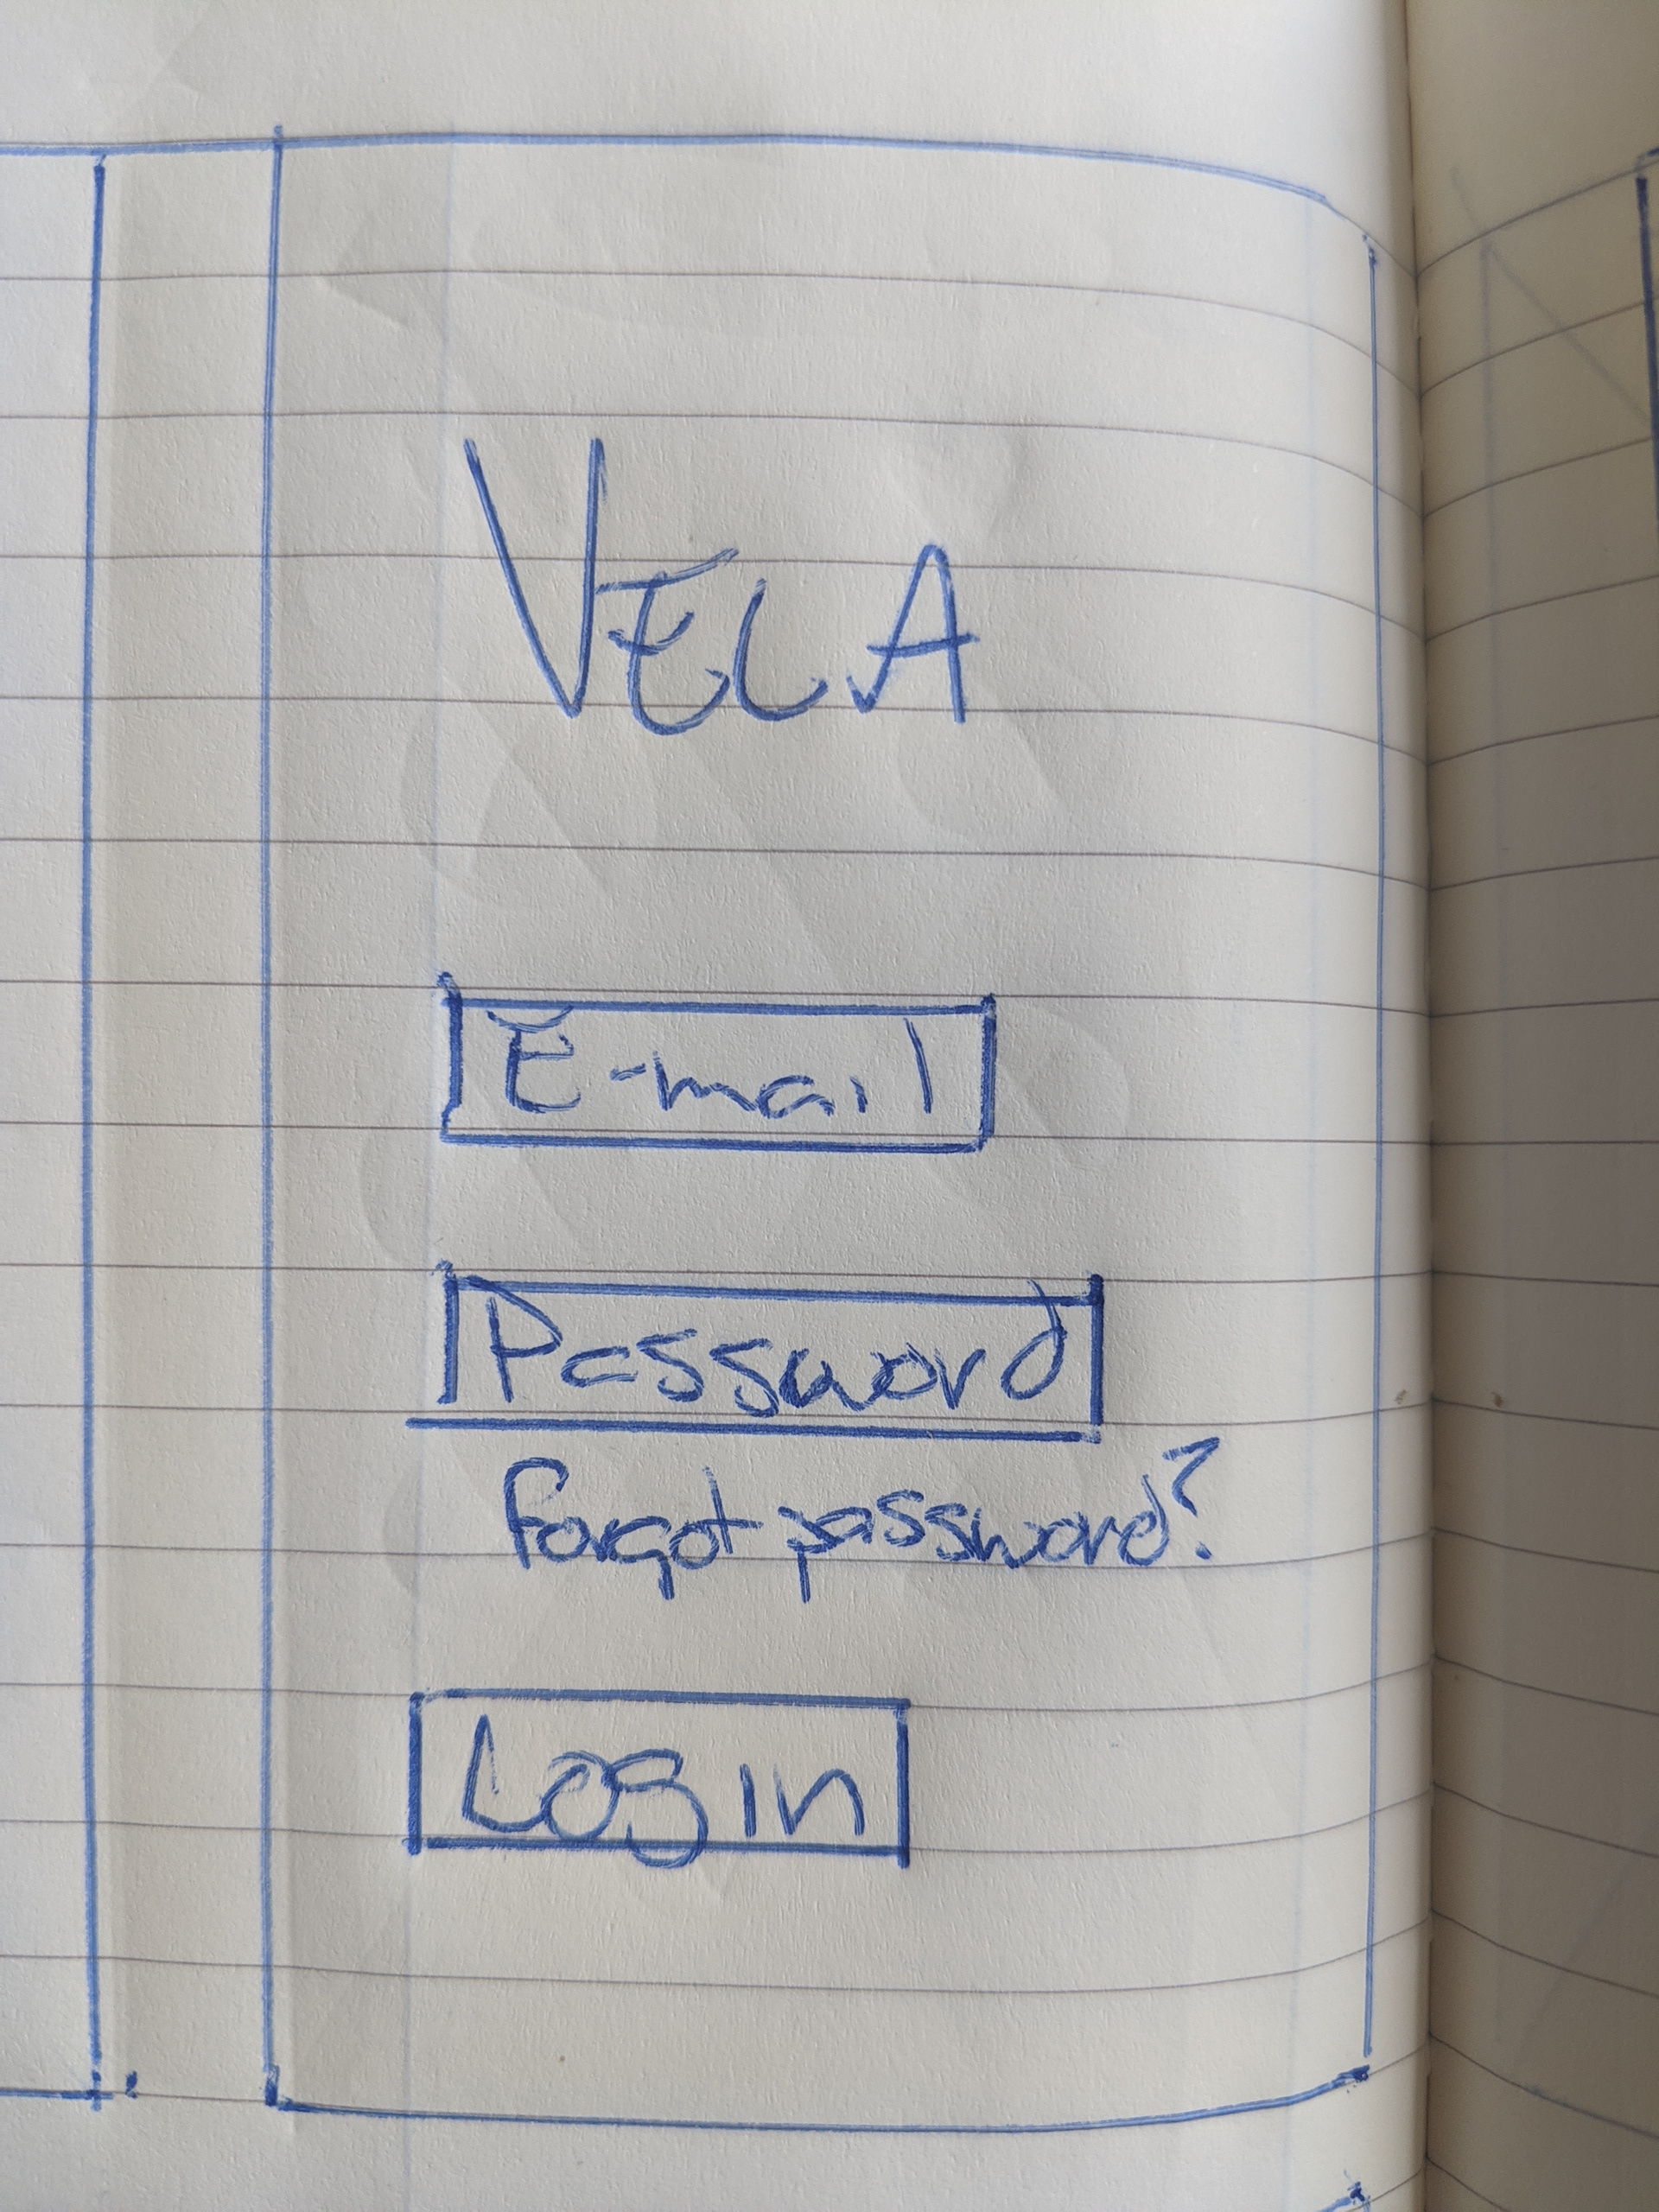 VELA
E-mail
Password
forgot password?
Login